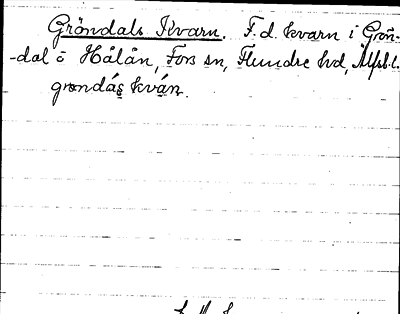 Gröndals Kvarn. F.d. kvarn i Grön-
-dal ö Hålån, Fors sn, Flundre hd, Älfsb. l.
grondás kván.